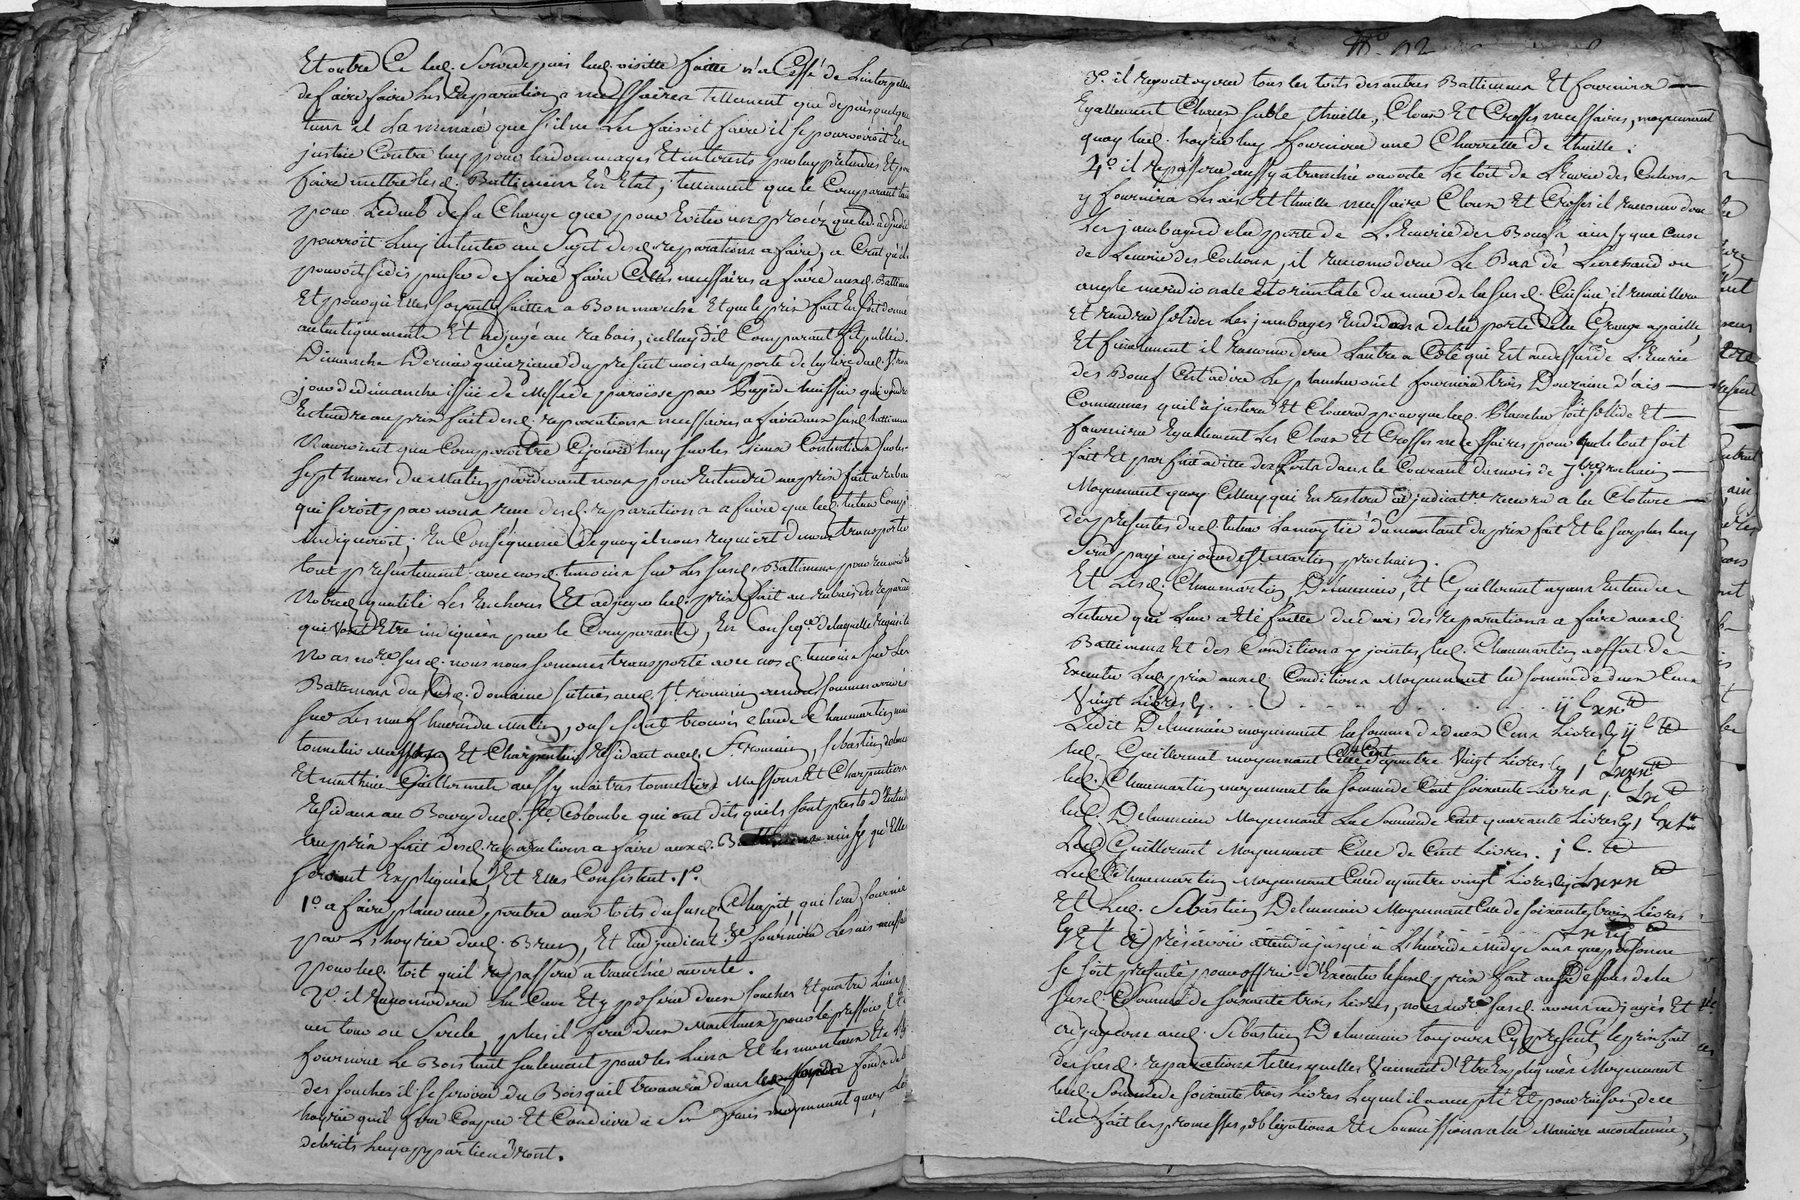 Et outre Ce led. Sr. Brun depuis lad. visitte faitte n'a Cessé de
de faire faire les reparations necessaires tellement que depuis quelque
tems il La menacé que s'il ne Les faisoit faire il se pourvoiroit En
justice Contre luy pour les dommages Et interets par luy pretendus Et pour
faire mettre lesd. Battiments En Etat, tellement que le Comparant tant
pour Ledub de sa Charge que pour Eviter un procez que led.
pourroit luy intenter au Sujet desd. reparations a faire, a Crut qu'il
pouvoit se dis penser de faire faire Celles necessaires a faire auxd. Battiments
Et pour qu'Elles soyent faittes a Bon marché Et que le prix fait En soit donné
autentiquement Et adjugé au rabais, icelluy dit Comparant fit publier
Dimanche Dernier quinzieme du present mois a la porte de
jour de dimanche issüe de Messe de paroisse par huissier que
Entendre au prix fait desd. reparations necessaires a faire aux susd. battiments
n'auroient qua Comparoitre Cejourd'huy sur les
sept heures du Matin pardevant nous pour Entendre au prix fait a rabais
qui seroit par nous rendu desd. reparations a faire que led. tuteur Comp.
indiqueroit; En Conséquence de quoy il nous requiert de nous transporter
tout presentement avec nosd. temoins sur Les susd. Battiments pour recevoir En
Notred. qualité Les Encheres Et adjuger led. prix fait au rabais des reparations
qui Vont Etre indiquées par le Comparant, En Conseqce. de laquelle
Nous nore. susd. nous nous sommes transporté avec nosd. temoins sur Les
Battiments du susd. domaine situés aud. St. romain ou nous sommes arrivés
sur Les neuf heures du Matin, ou se sont trouvés Claude Chaumartin
tonnelier Masson Et Charpentier résidant aud. St. romain, Sebastien Delmenin
Et mathieu Guillermet aussy maitres tonneliers Massons Et Charpentiers
residants au Bourg dud. Ste. Colombe qui ont dit quils sont prets d'Entendre
au prix fait desd. reparations a faire auxd. Battiments ainsy qu'Elles
seront Expliquées, Et Elles Consistent. 1°.
1°. a faire placer une poutre aux toits du susd. Chapit qui sera fournie
par L'hoyrie dud. Brun, Et Ladjudicatre. fournira Les ais
pour led. toit quil repassera a tranchée ouverte.
2°. il racomodera La Cuve Et y posera deux souches Et quatre Liens
un tour ou Sercle, plus il fera deux Manteaux pour le pressoir, Et
fournira Le Bois tant seulement pour les Liens Et les manteaux Et
des souches il se servira du Bois quil trouvera dans les fonds de lad.
hoyrie quil fera Couper Et Conduire a Ses frais moyennant quoy Les
debrits luy appartiendront.
N°. 92
3°. il repassera tous les toits des autres Battiments Et fournira
Egallement Chaux sable thuille, Cloux Et Crosses necessaires, moyennant
quoy lad. hoyrie luy fournira une Charrette de thuille.
4°. il repassera aussy a tranchée ouverte Le toit de L'Ecurie des Cochons
y fournira Les ais Et thuille necessaire Cloux Et Crosses il racomodera
Les jambages de la porte de L'Ecurie des Boeufs ainsy que Ceux
de L'ecurie des Cochons, il racomodera Le Bas de Lencoignure ou
angle meridionale Et orientale du mur de la susd. Cuisine il remaillera
et rendra solides Les jambages En dedans de la porte de La Grange a paille,
Et finalement il racomodera L'autre a Coté qui Est audessus de L'Ecurie
des Boeuf C'est a dire Le plancher ou il fournira trois Douzaine d'ais
Communes quil ajustera Et Clouera pour que led. Plancher soit solide Et
fournira Egallement Les Cloux Et Crosses necessaires pour que le tout soit
fait Et parfait a ditte d'Experts dans le Courant du mois de 7bre. prochain
Moyennant quoy Celluy qui En restera adjudicatre. recevra a la Cloture
des presentes dud. tuteur La moytié du montant du prix fait Et le surplus luy
Sera payé au jour de St. martin prochain.
Et Lesd. Chaumartin, Delmenin, Et Guillermet ayant Entendu
Lecture qui Leur a Eté faitte du devis des reparations a faire auxd.
Battiments Et des Conditions y jointes, led. Chaumartin a offert de
Executer Led. prix auxd. Conditions Moyennant la somme de deux Cens
Vingt Livres Cy . . . . . . . . . . . ij C xx tt
Ledit Delmenin moyennant la somme de deux Cens Livres Cy ij C tt
led. Guillermet moyennant Celle de Cent quatre Vingt Livres Cy j C Lxxx tt
led. Chaumartin moyennant la somme de Cent soixante Livres j C Lx tt
led. Delmenin Moyennant La Somme de Cent quarante Livres Cy j C xL tt
Led. Guillermet Moyennant Celle de Cent Livres. j C. tt
Led. Chaumartin Moyennant Celle de quatre vingt Livres Cy Lxxx tt
Et Led. Sebastien Delmenin Moyennant Celle de soixante trois Livres
Cy Lxiij tt
Et apres avoir attendu jusqu'a L'heure de Midy Sans que personne
se soit presenté pour offrir d'Executer le susd. prix fait audessous de la
susd. Somme de soixante trois Livres, nous nore. susd. avons adjugés Et
adjugeons aud. Sebastien Delmenin toujours Cy present, le prix fait
des susd. reparations telles quelles Viennent d'Etre Expliquées Moyennant
lad. Somme de soixante trois Livres Lequel il a accepté Et pour raison de ce
il a fait les promesses, obligations Et Soumissions a la Maniere accoutumée,